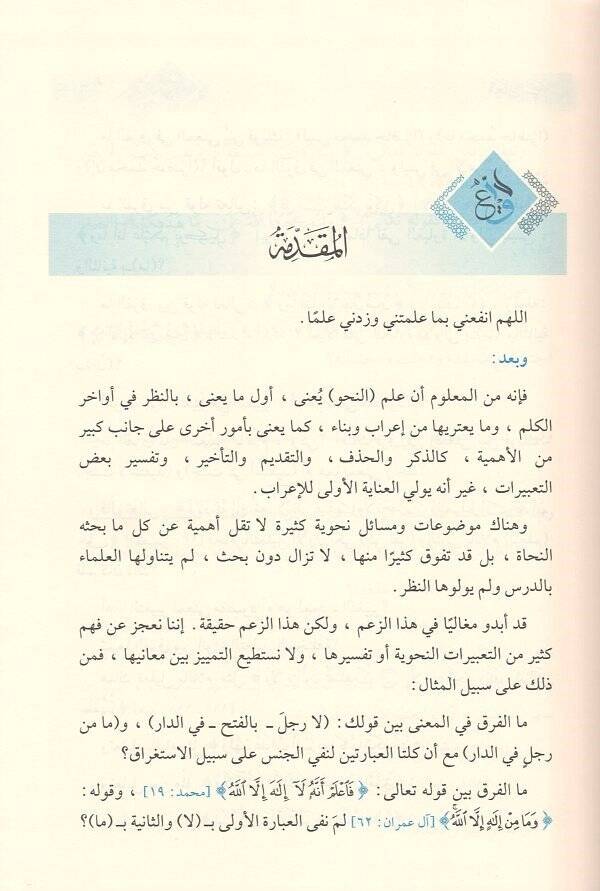 المقدمة
اللهم انفعني بما علمتني وزدني علمًا.
وبعد:
فإنه من المعلوم أن علم (النحو) يُعنى ، أول ما يعنى ، بالنظر في أواخر
الكلم ، وما يعتريها من إعراب وبناء ، كما يعنى بأمور أخرى على جانب كبير
من الأهمية ، كالذكر والحذف، والتقديم والتأخير ، وتفسير بعض
التعبيرات ، غير أنه يولي العناية الأولى للإعراب.
وهناك موضوعات ومسائل نحوية كثيرة لا تقل أهمية عن كل ما بحثه
النحاة ، بل قد تفوق كثيرًا منها ، لا تزال دون بحث ، لم يتناولها العلماء
بالدرس ولم يولوها النظر.
قد أبدو مغاليًا في هذا الزعم ، ولكن هذا الزعم حقيقة. إننا نعجز عن فهم
كثير من التعبيرات النحوية أو تفسيرها ، ولا نستطيع التمييز بين معانيها ، فمن
ذلك على سبيل المثال:
ما الفرق في المعنى بين قولك: (لا رجلَ ـ بالفتح ـ في الدار) ، و(ما من
رجلٍ في الدار) مع أن كلتا العبارتين لنفي الجنس على سبيل الاستغراق؟
ما الفرق بين قوله تعالى: ﴿فَٱعْلَمْ أَنَّهُۥ لَآ إِلَٰهَ إِلَّا ٱللَّهُ﴾ [محمد: ١٩] ، وقوله:
﴿وَمَا مِنْ إِلَٰهٍ إِلَّا ٱللَّهُ﴾ [آل عمران: ٦٢] لمَ نفى العبارة الأولى بـ (لا) والثانية بـ (ما)؟